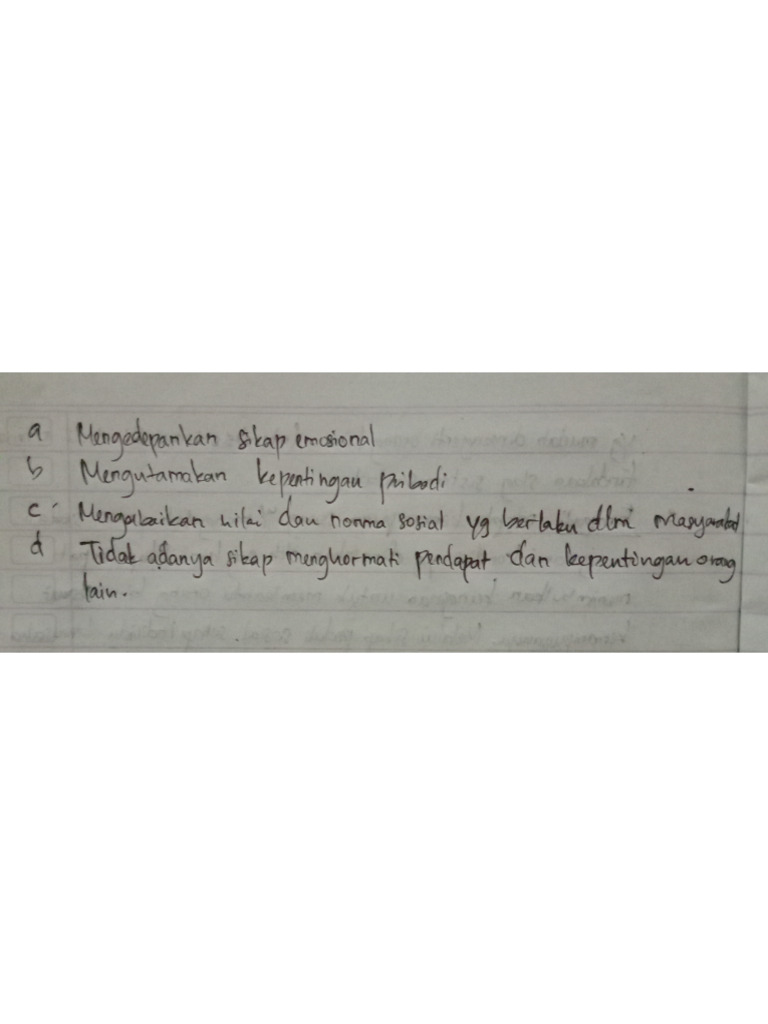 a Mengedepankan sikap emosional
b Mengutamakan kepentingan pribadi
c Mengabaikan nilai dan norma sosial yg berlaku dlm masyarakat
d Tidak adanya sikap menghormati pendapat dan kepentingan orang
lain.